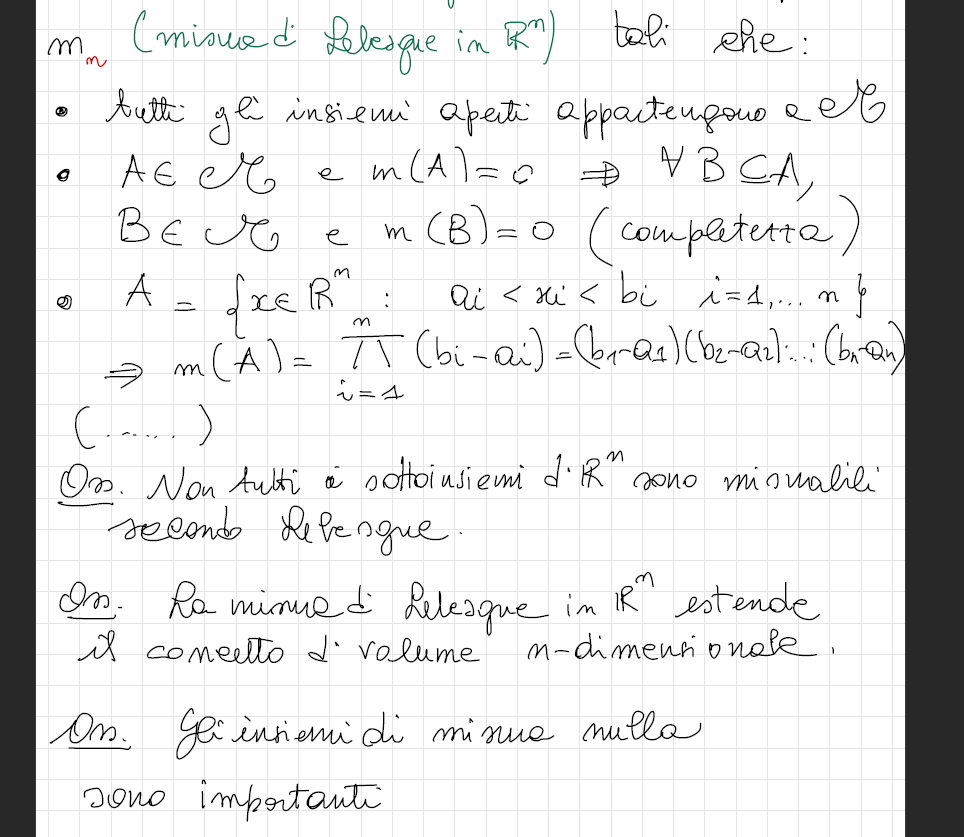 m_n (misura di Lebesgue in ℝⁿ) tali che:
• tutti gli insiemi aperti appartengono a ℳ
• A ∈ ℳ e m(A) = 0 ⇒ ∀ B ⊆ A,
B ∈ ℳ e m(B) = 0 (completezza)
• A = {x ∈ ℝⁿ : ai < xi < bi i=1,... n}
⇒ m(A) = ∏_{i=1}^{n} (bi - ai) = (b1-a1)(b2-a2)...(bn-an)
(......)
Oss. Non tutti i sottoinsiemi di ℝⁿ sono misurabili
secondo Lebesgue.
Oss. La misura di Lebesgue in ℝⁿ estende
il concetto di volume n-dimensionale.
Oss. Gli insiemi di misura nulla
sono importanti